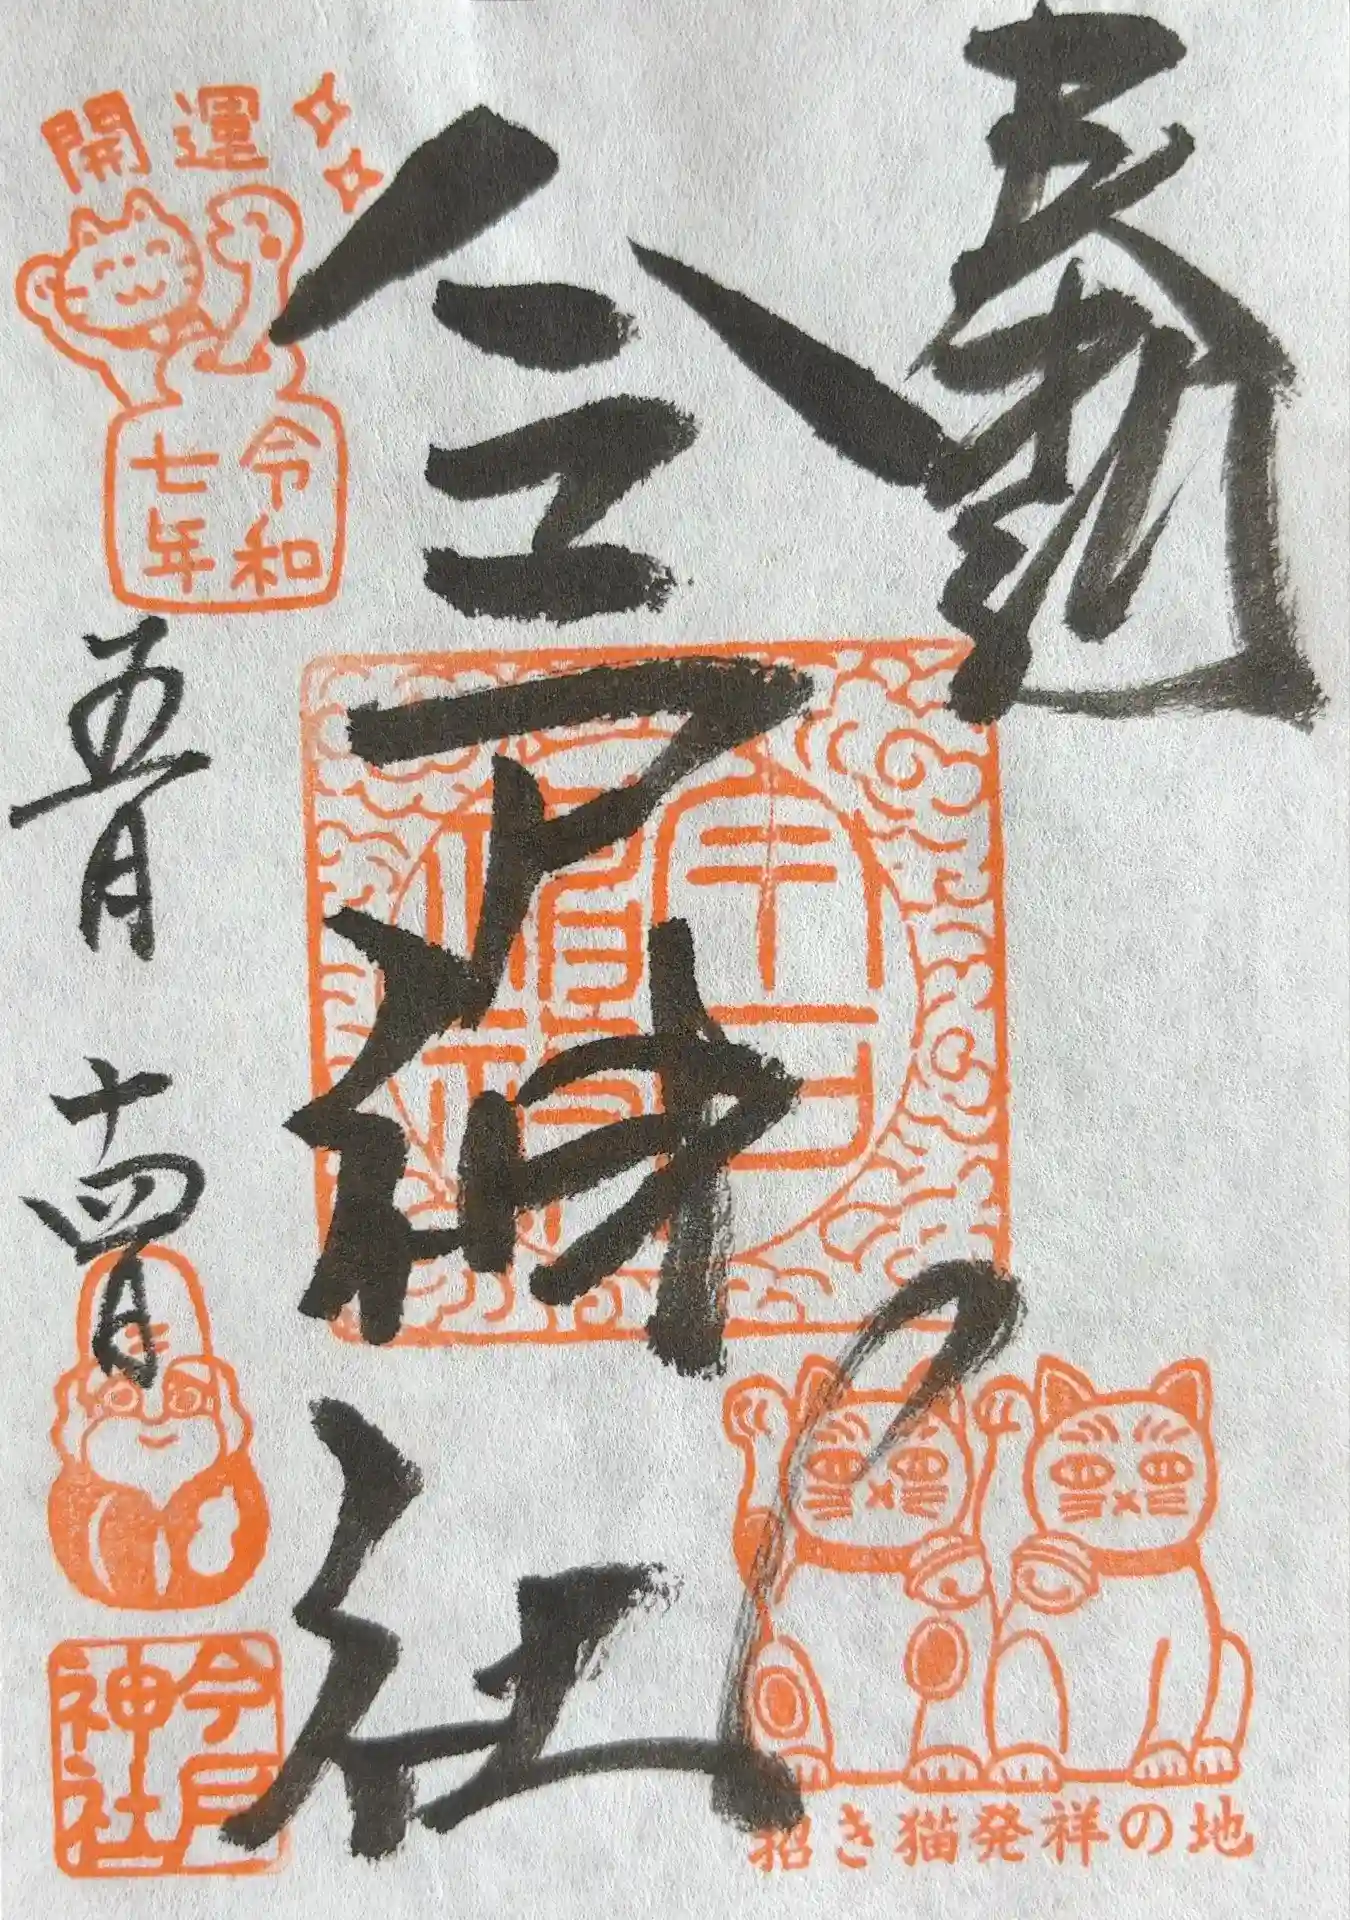 今戸神社
開運
令和
七年
五月
十四日
今戸
神社
招き猫発祥の地